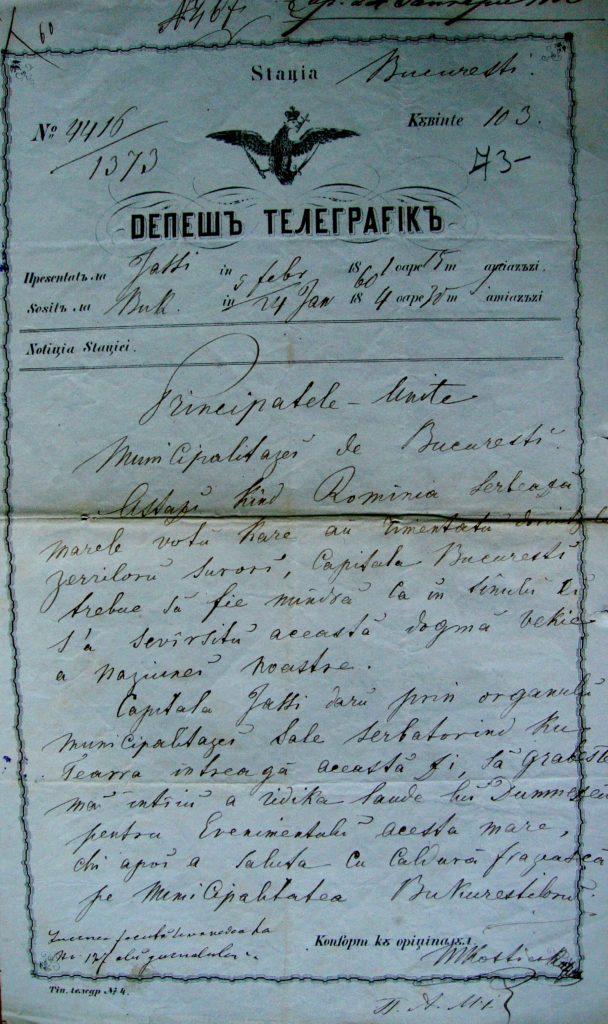 60
Stația București.
No 4416 / 1373
Кꙋvinte 103.
73-
DEПEШЪ TEЛEГРАFIKЪ
Пresentatъ лa Jassi in 5 febr 1861 oare 15 m amiazъzi.
Sositъ лa Buk. in 24 Jan 18 4 oare 35 m amiazъzi
Notiția Stației.
Principatele-Unite
Municipalitazei de Bucuresti.
Astazi kînd Rominia serbează
marele votu kare au
zerrilorŭ surori, Capitala Bucuresti
trebue să fie mîndră ca in sînulŭ Ei
s'a sevîrsitŭ această dogmă vekie
a naziunei noastre.
Capitala Jassi darŭ prin organulŭ
municipalitazei sale serbatorind ku
Tearra intreagă această zi, să grabeste
mai intîiŭ a ridika laude lui Dumnezeu
pentru Evenimentulŭ acesta mare,
shi apoi a saluta cu caldură frazească
pe Municipalitatea Bukurestilorŭ.
Konform kъ originaлъл.
Tip. телegr № 4.